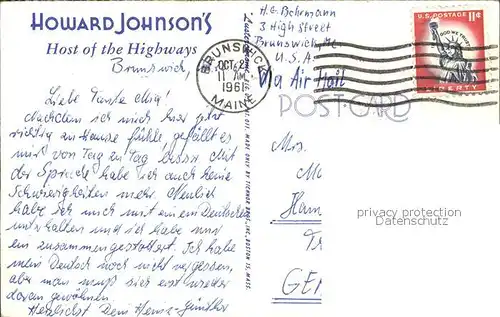 HOWARD JOHNSON'S
Host of the Highways
Brunswick,
Liebe Tante Mia!
Nachdem ich mich hier jetzt
richtig zu Hause fühle, gefällt es
mir von Tag zu Tag besser. Mit
der Sprache habe ich auch keine
Schwierigkeiten mehr. Neulich
habe ich mich mit einem Deutschen
unterhalten und ich habe nur
zusammengestottert. Ich habe
mein Deutsch noch nicht vergessen,
aber man muß sich erst wieder
daran gewöhnen
Herzlichst Dein Heinz-Günther
BRUNSWICK
OCT 2
11 AM
1961
MAINE
H. G.
3 High Street
Brunswick, Me
U.S.A.
Via Air Mail
U.S. POSTAGE 11¢
IN GOD WE TRUST
LIBERTY
POST CARD
Mrs.
M
Ham
Tr
GE
privacy protection
Datenschutz